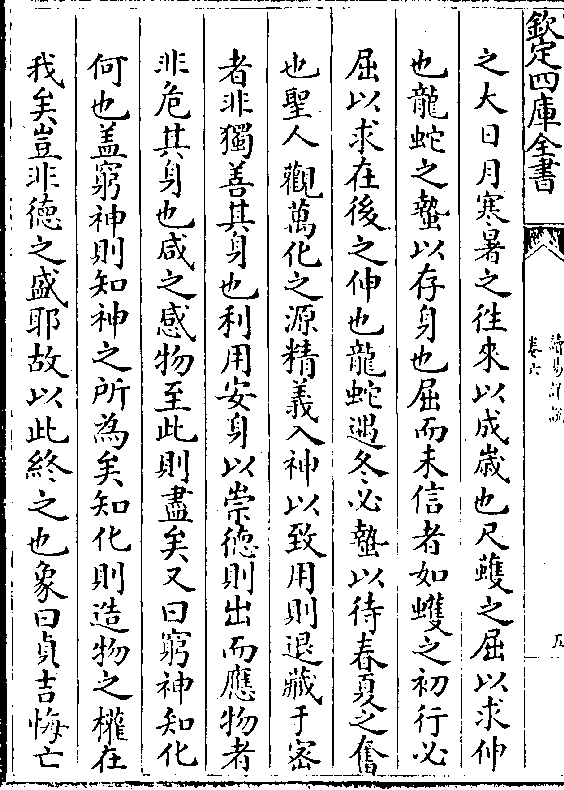 欽定四庫全書
讀易詳說
卷六
五
之大日月寒暑之往來以成歲也尺蠖之屈以求伸
也龍蛇之蟄以存身也屈而未信者如蠖之初行必
屈以求在後之伸也龍蛇遇冬必蟄以待春夏之奮
也聖人觀萬化之源精義入神以致用則退藏于密
者非獨善其身也利用安身以崇德則出而應物者
非危其身也咸之感物至此則盡矣又曰窮神知化
何也盖窮神則知神之所為矣知化則造物之權在
我矣豈非德之盛耶故以此終之也象曰貞吉悔亡